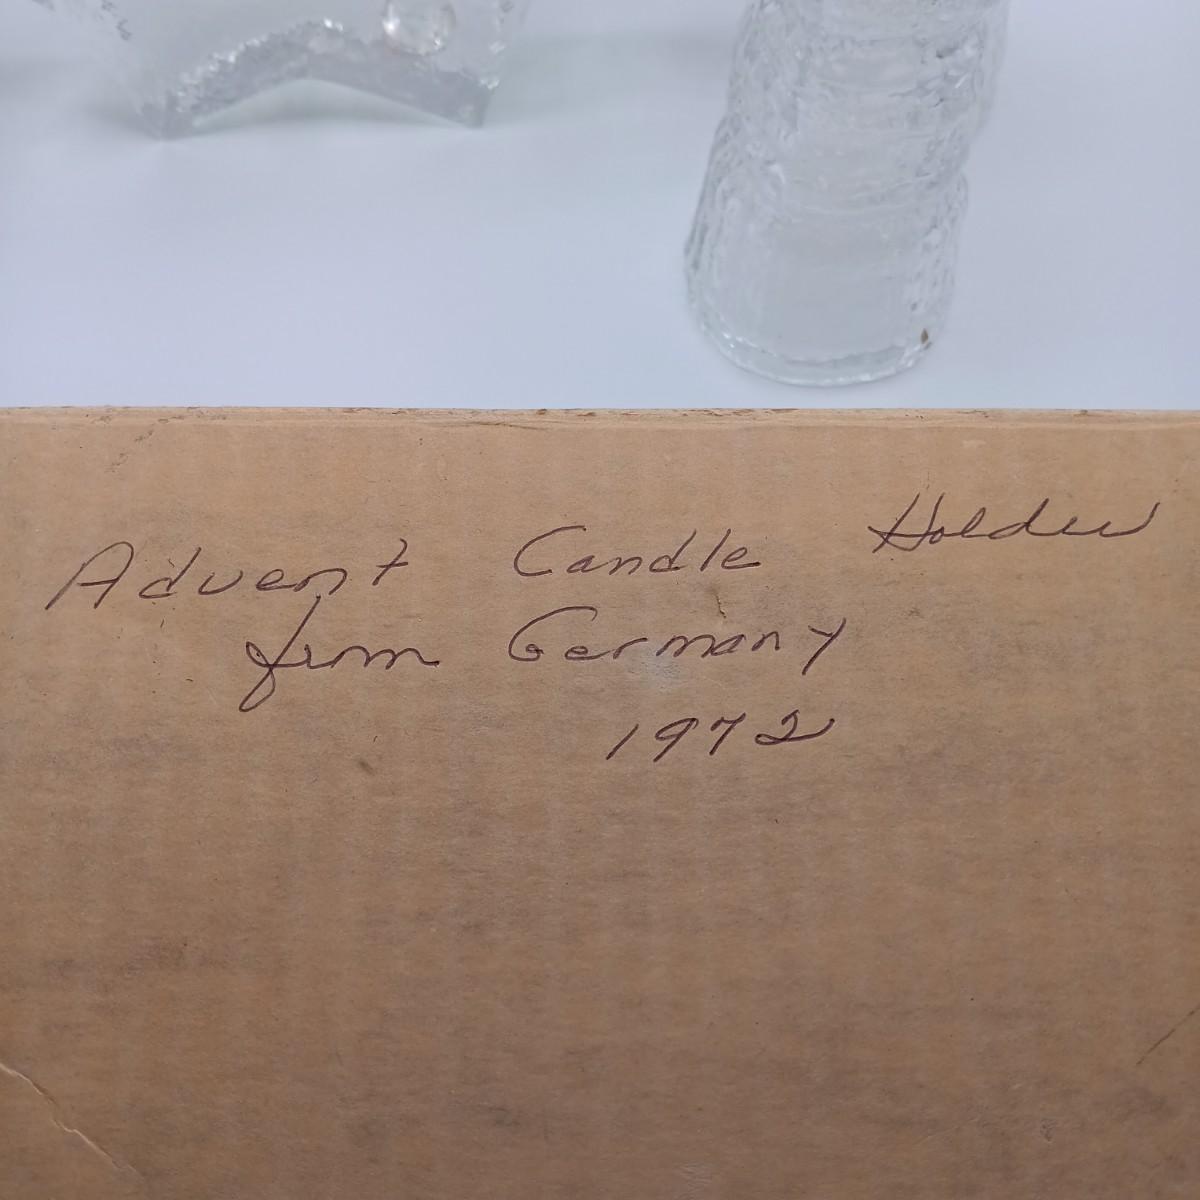 Advent Candle Holder
from Germany
1972